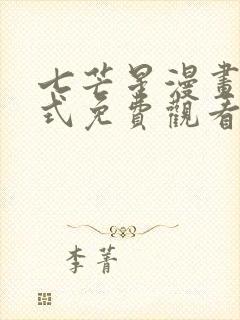 七芒星漫畫
式免費觀看
李菁